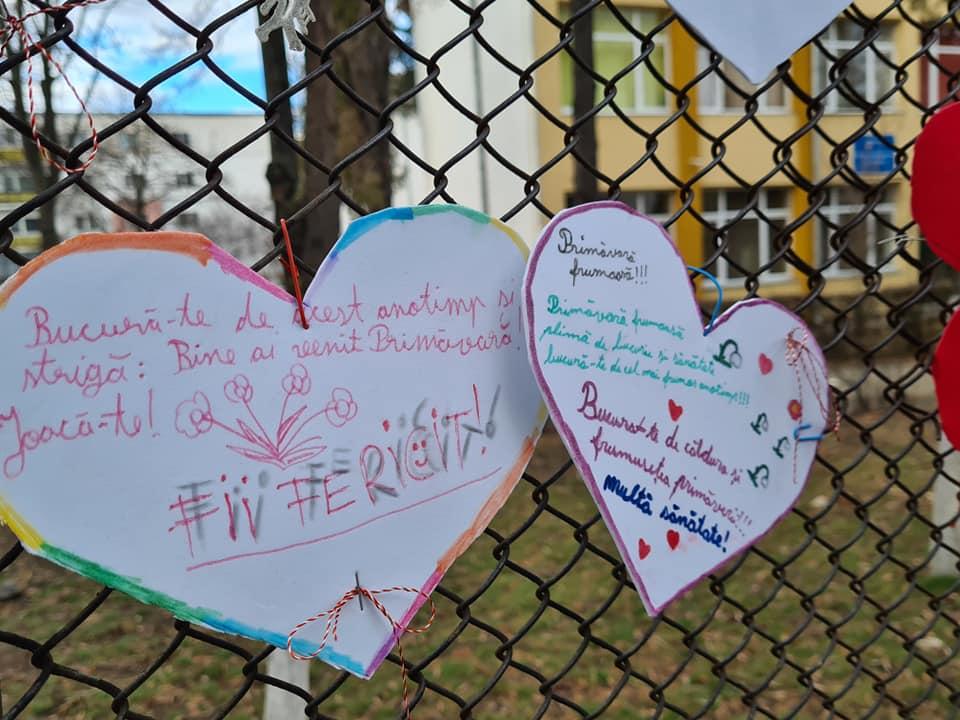 Bucură-te de acest anotimp și
strigă: Bine ai venit Primăvară!
Joacă-te!
FII FERICIT!
Primăvară
frumoasă!!!
Primăvară frumoasă
plină de bucurii și sănătate
bucură-te de cel mai frumos anotimp!!!
Bucurat-te de căldura și
frumusețea primăverii!!!
multă sănătate!